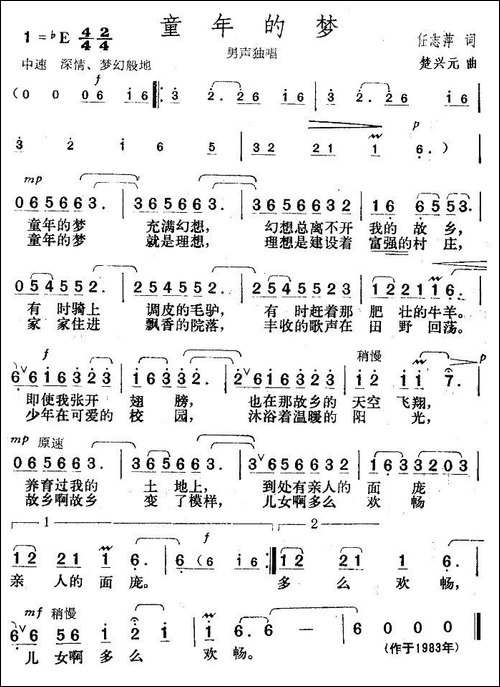 童年的梦
1=♭E 4/4 2/4
男声独唱
任志萍 词
楚兴元 曲
中速 深情、梦幻般地
f
(0 0 06 i6 ‖: 3 2.326 i6 3 2.326 i6
3 2 i 6 5 332 21 1 6.)
p
mp
065663. 365663. 36566632 16 6553.
童年的梦 充满幻想， 幻想总离不开 我的 故 乡，
童年的梦 就是理想， 理想是建设着 富强的村 庄，
054552. 254552. 05455522 122116.
有 时骑上 调皮的毛驴， 有 时赶着那 肥 壮的牛羊。
家 家住进 飘香的院落， 丰收的歌声在 田 野 回荡。
f
稍慢
p
6 6166323 16332. 2 61663323 12 11 7.
即使我张开 翅 膀， 也在那故乡的 天空 飞翔，
少年在可爱的 校 园， 沐浴着温暖的 阳 光，
mp 原速
065663. 365663. 3 65666632 1633203
养育过我的 土 地上， 到处有亲人的 面 庞
故乡啊故乡 变 了模样， 儿女啊多么 欢 畅
1 2
f
12 21 1 6. 6 (6 i6 :‖ 12 21 1 6.
亲 人的 面 庞。 多 么 欢 畅，
mf 稍慢
6 66 56 1 2 2 1 1 6. 6 6 — 6 0 0 0
儿 女啊 多 么 欢 畅。
(作于1983年)